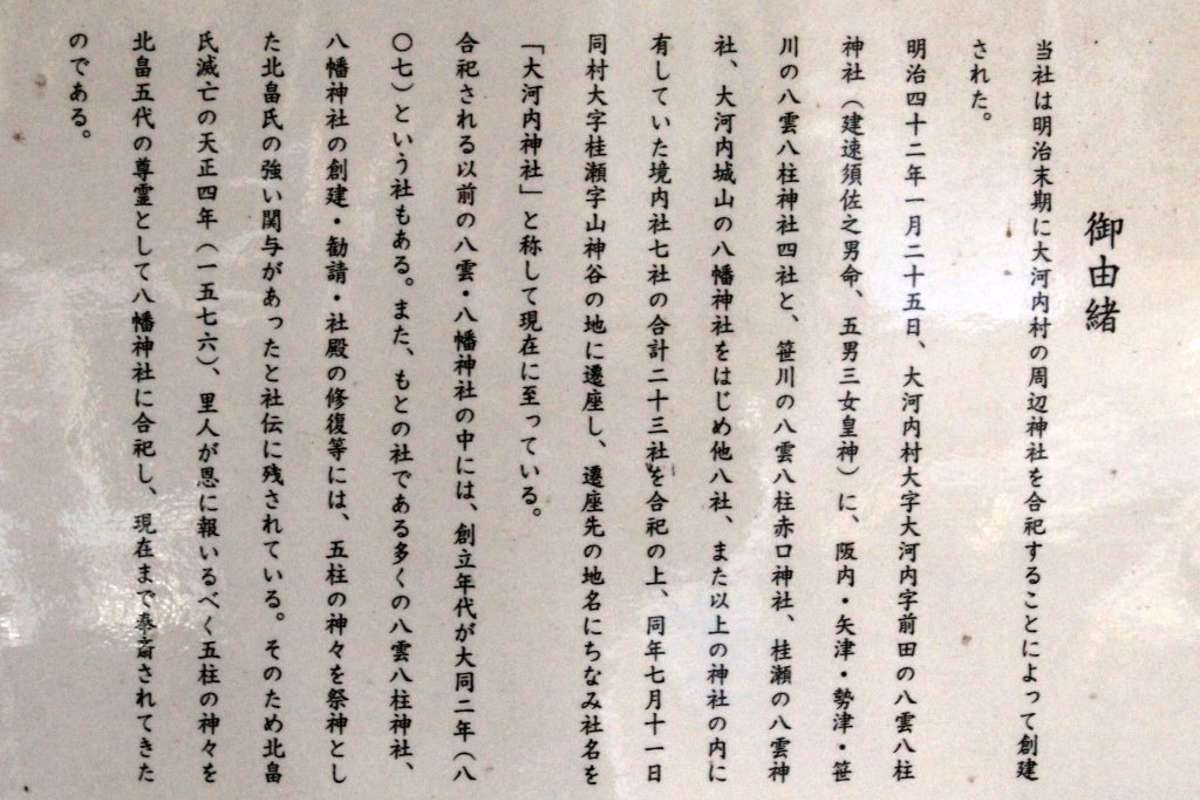 御由緒
当社は明治末期に大河内村の周辺神社を合祀することによって創建
された。
明治四十二年一月二十五日、大河内村大字大河内字前田の八雲八柱
神社（建速須佐之男命、五男三女皇神）に、阪内・矢津・勢津・笹
川の八雲八柱神社四社と、笹川の八雲八柱赤口神社、桂瀬の八雲神
社、大河内城山の八幡神社をはじめ他八社、また以上の神社の内に
有していた境内社七社の合計二十三社を合祀の上、同年七月十一日
同村大字桂瀬字山神谷の地に遷座し、遷座先の地名にちなみ社名を
「大河内神社」と称して現在に至っている。
合祀される以前の八雲・八幡神社の中には、創立年代が大同二年（八
〇七）という社もある。また、もとの社である多くの八雲八柱神社、
八幡神社の創建・勧請・社殿の修復等には、五柱の神々を祭神とし
た北畠氏の強い関与があったと社伝に残されている。そのため北畠
氏滅亡の天正四年（一五七六）、里人が恩に報いるべく五柱の神々を
北畠五代の尊霊として八幡神社に合祀し、現在まで奉斎されてきた
のである。